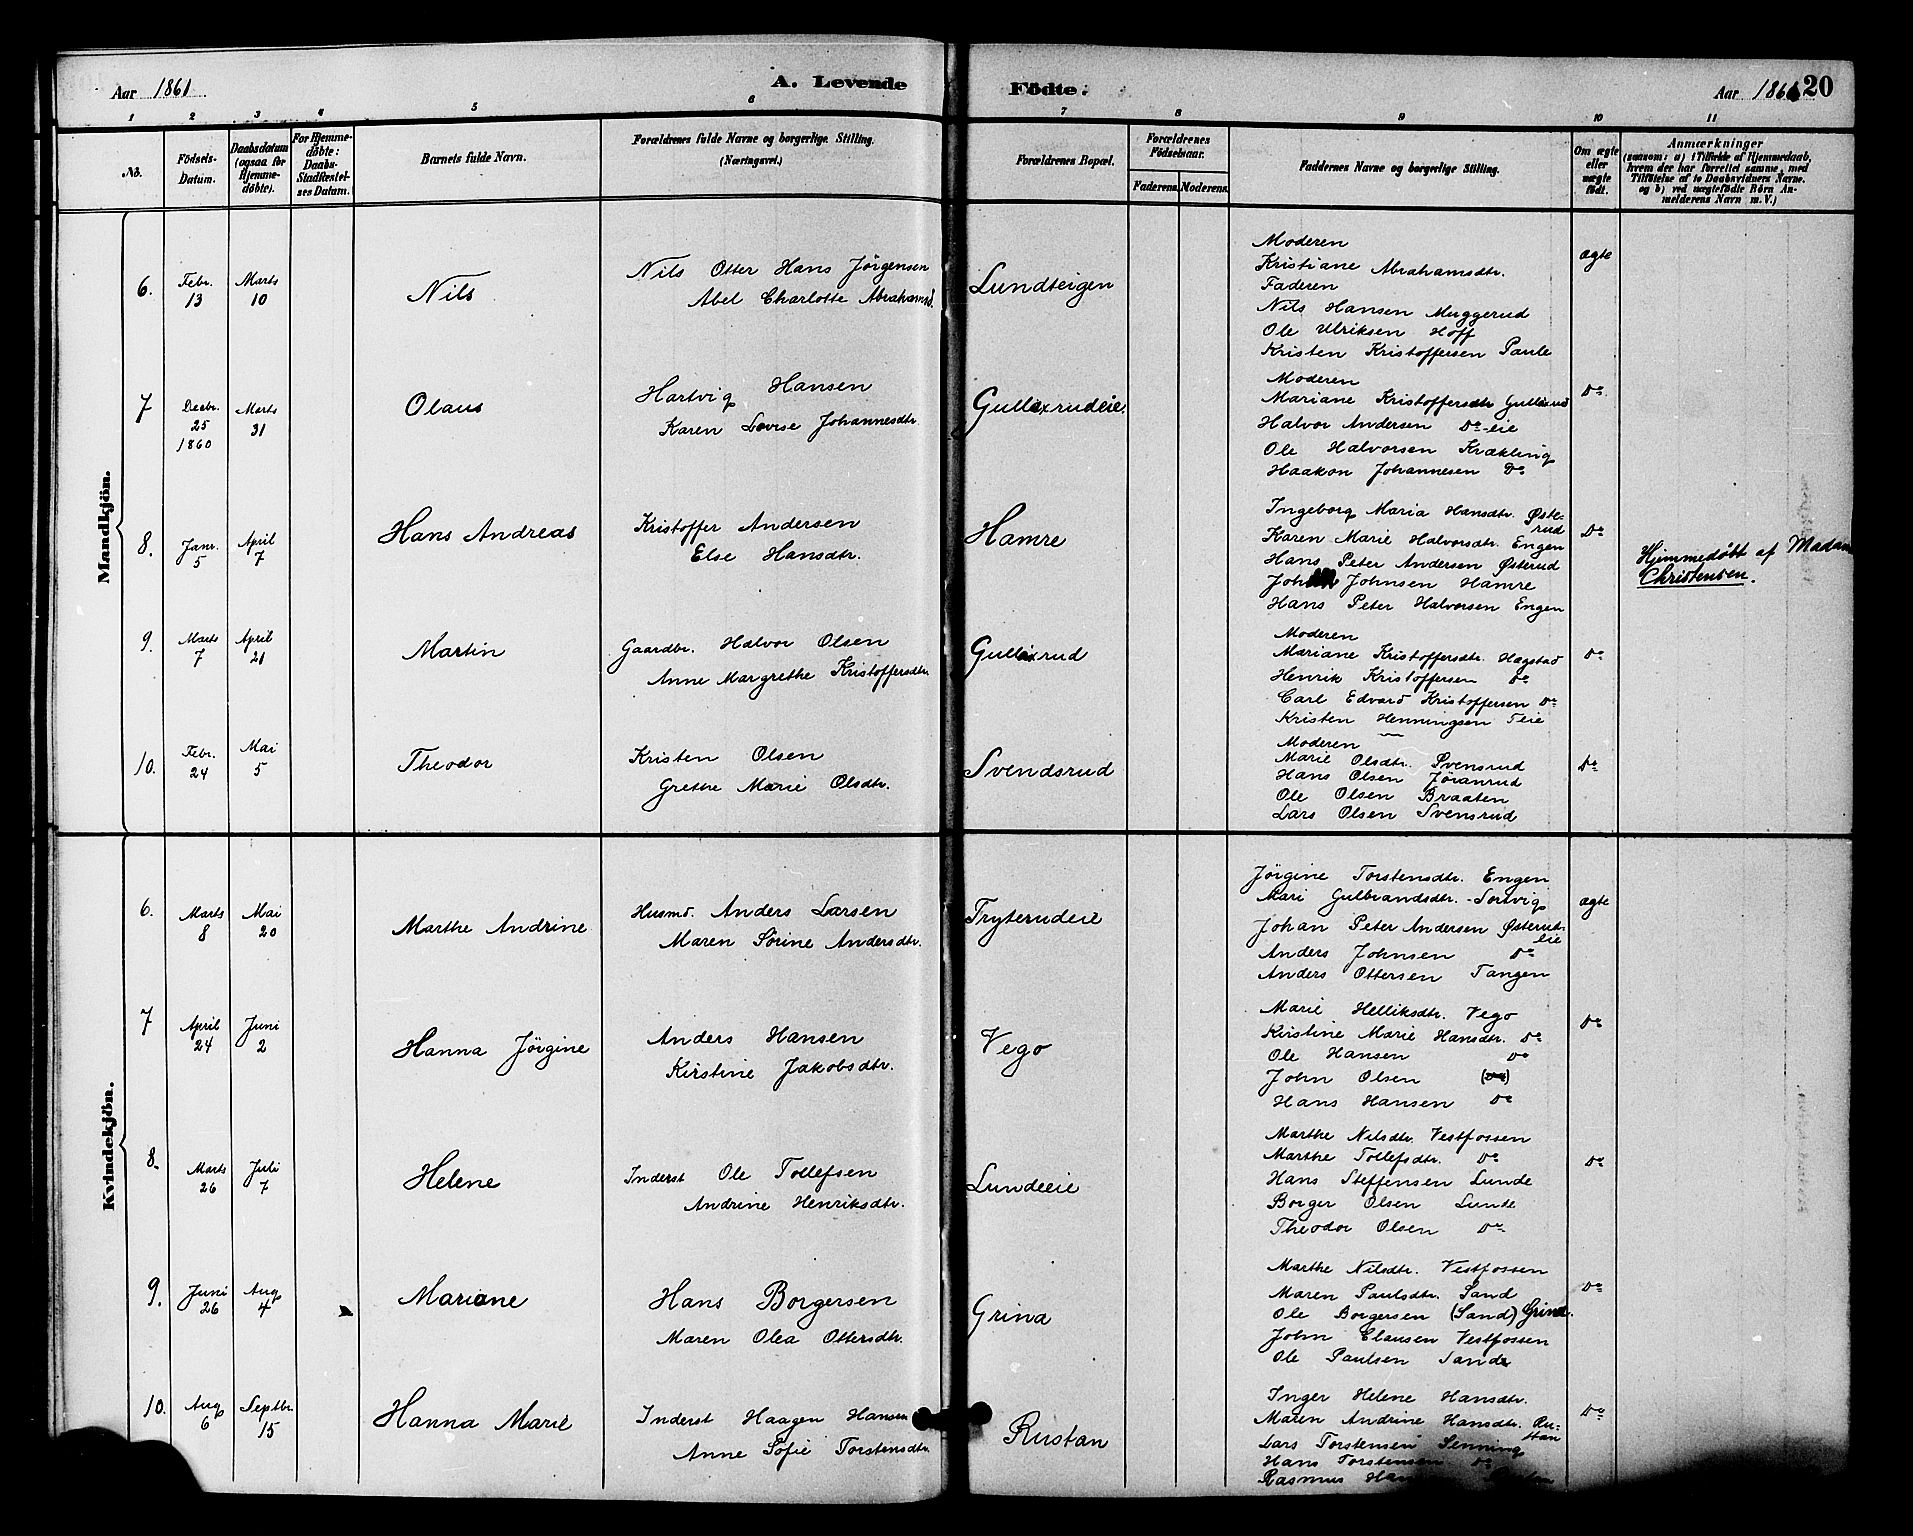 Aar 1861
A. Levende
Födte.
Aar 1861 20
1 2 3 4 5 6 7 8 9 10 11
No.
Födsels-Datum.
Daabsdatum (ogsaa for Hjemme-döbte).
For Hjemme-döbte: Daabs-Stadfæstel-ses Datum.
Barnets fulde Navn.
Forældrenes fulde Navne og borgerlige Stilling. (Næringsvei.)
Forældrenes Bopæl.
Forældrenes Födselsaar.
Faderens. Moderens.
Faddernes Navne og borgerlige Stilling.
Om ægte eller uægte födt.
Anmærkninger
(saasom: a) i Tilfælde af Hjemmedaab, hvem der har forrettet samme, med Tilföielse af to Daabsvidners Navne. og b) ved uægtefödte Börn An-melderens Navn m. V.)
Mandkjön.
6. Febr. 13 Marts 10 Nils
Nils Otter Hans Jörgensen
Abel Charlotte Abrahamsd.
Lundteigen
Moderen
Kristiane Abrahamsdtr.
Faderen
Nils Hansen Muggerud
Ole Ulriksen Hoff
Kristen Kristoffersen Paule
ægte
7 Decbr. 25 1860 Marts 31 Olaus
Hartvig Hansen
Karen Lovise Johannesdtr.
Gullixrudeie.
Moderen
Mariane Kristoffersdtr Gullixrud
Halvor Andersen Do-eie
Ole Halvorsen Krækling
Haakon Johannesen Do
Do
8. Janr. 5 April 7 Hans Andreas
Kristoffer Andersen
Else Hansdtr.
Hamre
Ingeborg Maria Hansdtr. Öste-rud
Karen Marie Halvorsdtr. Engen
Hans Peter Andersen Østerud
Johan Johnsen Hamre
Hans Peter Halvorsen Engen
Do
Hjemmedøbt af Madam
Christensen.
9. Marts 7 April 21 Martin
Gaardbr. Halvor Olsen
Anne Margrethe Kristoffersdtr.
Gullixrud
Moderen
Mariane Kristoffersdtr. Hægstad
Henrik Kristoffersen Do
Carl Edvard Kristoffersen Do
Kristen Henningsen Teie
Do
10. Febr. 24 Mai 5 Theodor
Kristen Olsen
Grethe Marie Olsdtr.
Svendsrud
Moderen
Marie Olsdtr. Svensrud
Hans Olsen Jöranrud
Ole Olsen Braaten
Lars Olsen Svensrud
Do
Kvindekjön.
6. Marts 8 Mai 20 Marthe Andrine
Husmd. Anders Larsen
Maren Sörine Andersdtr.
Tryterudeie
Jörgine Torstensdtr. Engen
Mari Gulbrandsdtr. Sorvig
Johan Peter Andersen Østerud-eie
Anders Johnsen Do
Anders Ottersen Tangen
ægte
7 April 24 Juni 2 Hanna Jörgine
Anders Hansen
Kirstine Jakobsdtr.
Vego
Marie Helliksdtr. Vego
Kirstine Marie Hansdtr. Do
Ole Hansen Do
John Olsen (Do)
Hans Hansen Do
Do
8. Marts 26 Juli 7 Helene
Inderst Ole Tollefsen
Andrine Henriksdtr.
Lundeeie
Marthe Nilsdtr. Vestfossen
Marthe Tollefsdtr. Do
Hans Steffensen Lunde
Borger Olsen Lunde
Theodor Olsen Do
Do
9. Juni 26 Aug 4 Mariane
Hans Borgersen
Maren Olea Ottersdtr.
Grina
Marthe Nilsdtr. Vestfossen
Maren Paulsdtr. Sand
Ole Borgersen (Sand) Grina.
John Clausen Vestfossen
Ole Paulsen Sande
Do
10. Aug 6 Septbr. 15 Hanna Marie
Inderst Haagen Hansen
Anne Sofie Torstensdtr.
Rustan
Inger Helene Hansdtr.
Maren Andrine Hansdtr. Ru-stan
Lars Torstensen Senning
Hans Torstensen Do
Rasmus
Do